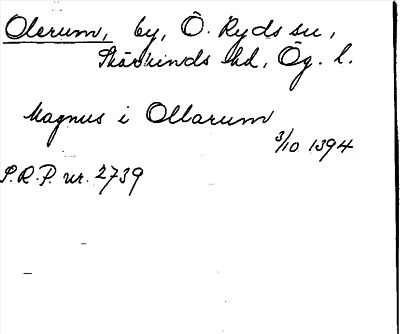 Olerum, by, Ö. Ryds sn,
Skärkinds hd, Ög. l.
Magnus i Ollarum
3/10 1394
S.R.P. nr. 2739